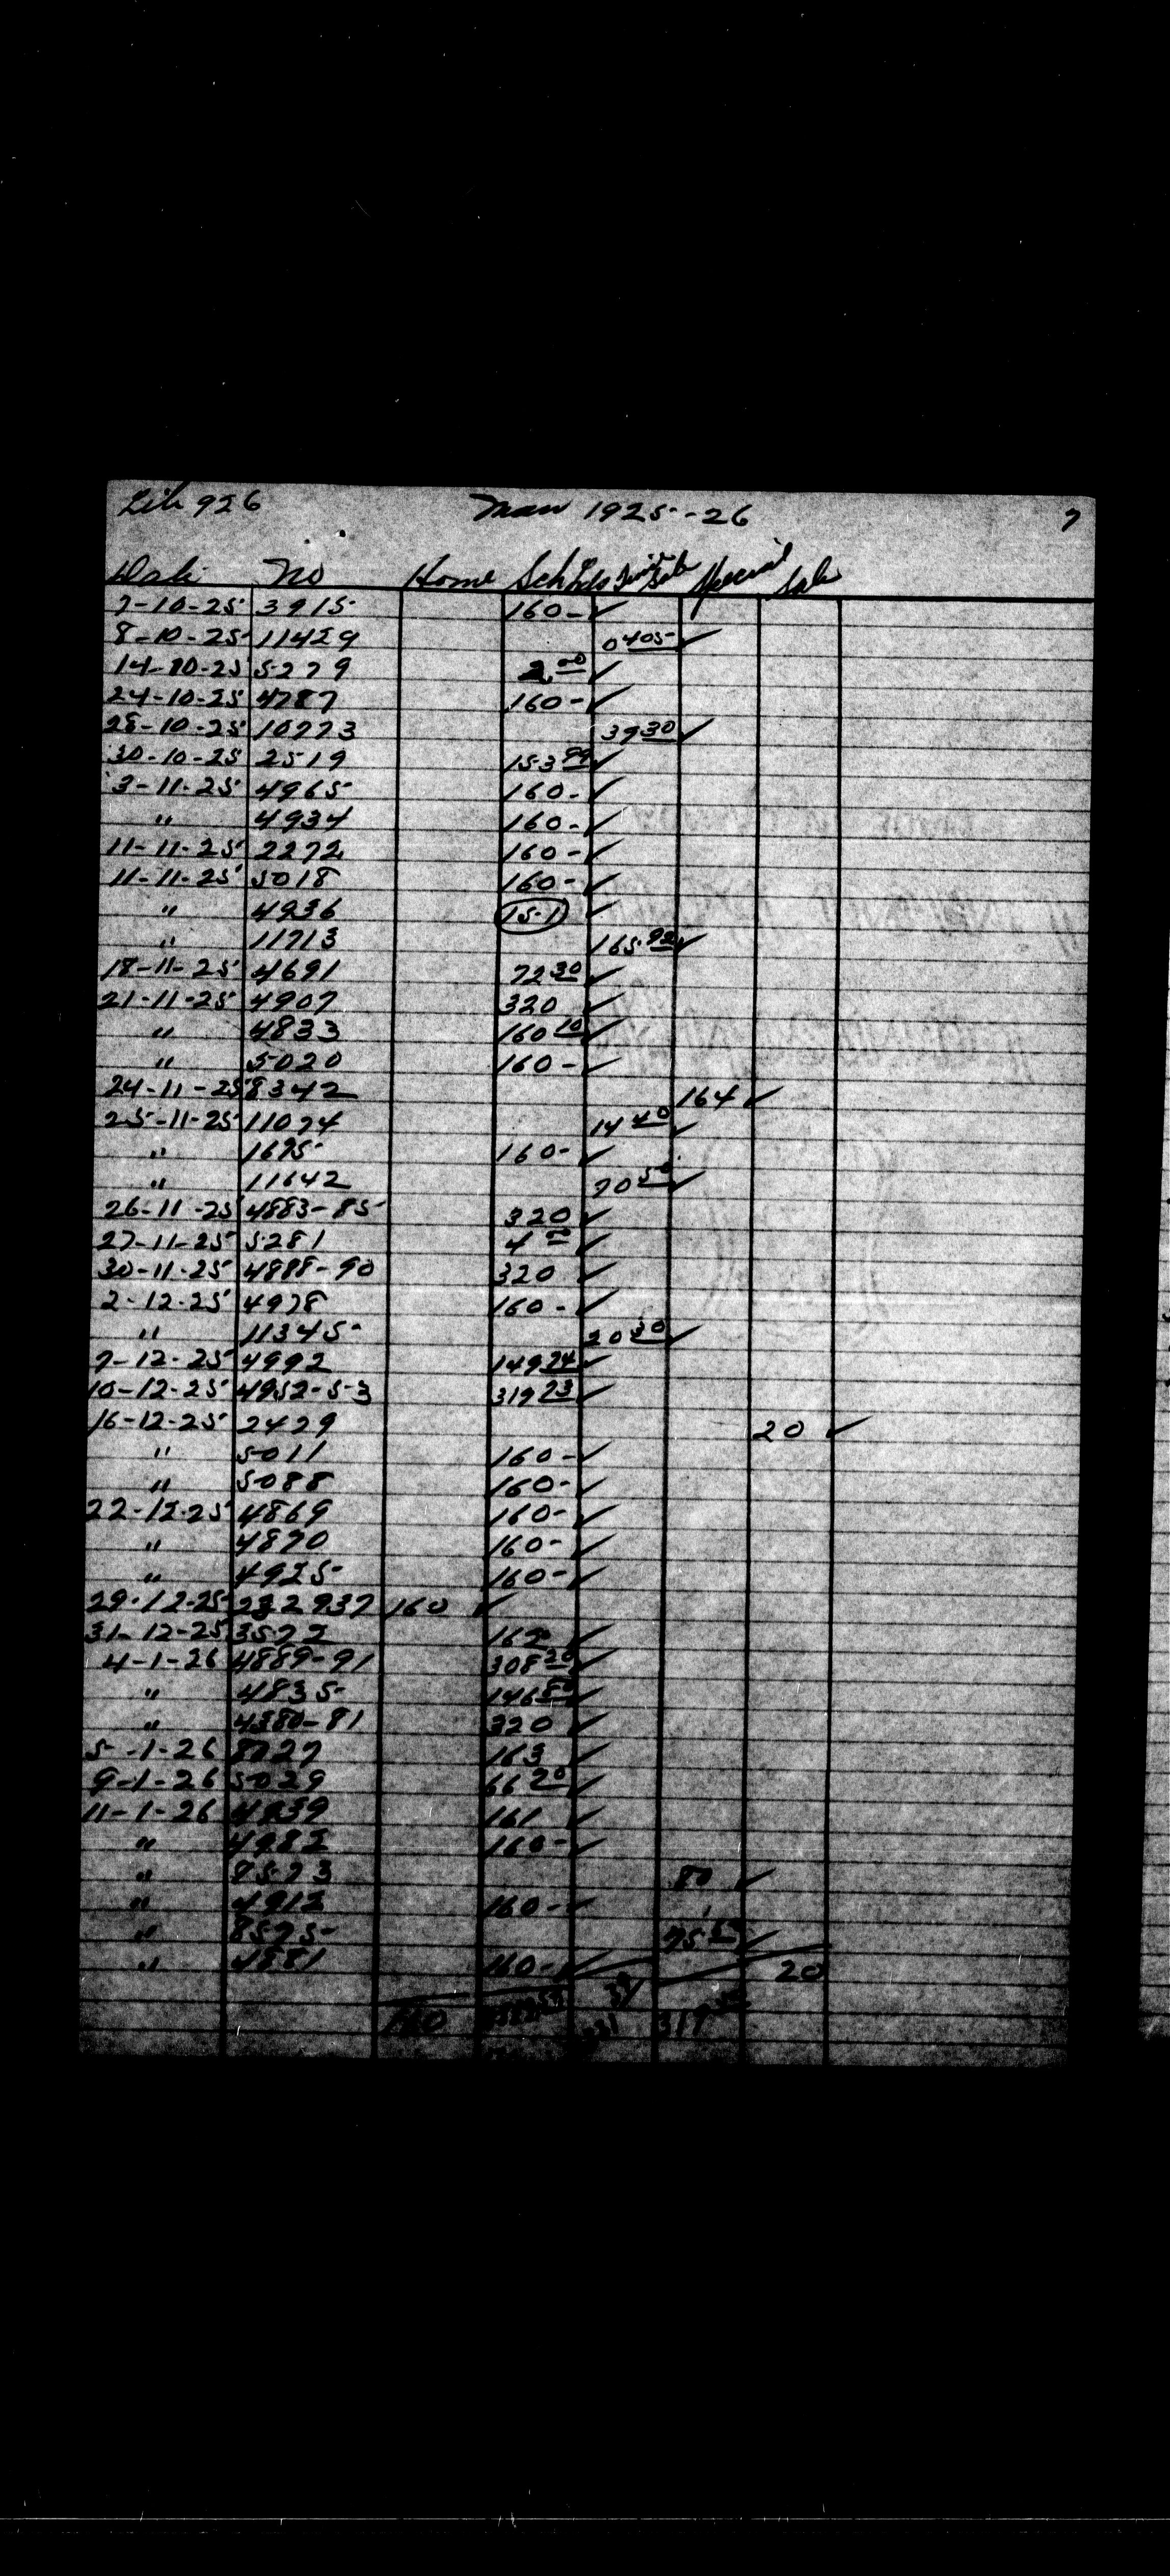 Lib 926 Man 1925-26 7
Date No Home Sch Special Sale
7-10-25 3915 160-✓
8-10-25 11429 0405✓
14-10-25 5279 2.00✓
24-10-25 4787 160-✓
28-10-25 10773 39 30✓
30-10-25 2519 153 99✓
3-11-25 4965 160-✓
" 4934 160-✓
11-11-25 2272 160-✓
11-11-25 5018 160-✓
" 4936 151 ✓
" 11713 165.92✓
18-11-25 4691 72 30✓
21-11-25 4907 320 ✓
" 4833 160 10✓
" 5020 160-✓
24-11-25 8342 164✓
25-11-25 11074 14 40✓
" 1695 160-✓
" 11642 70 50✓
26-11-25 4883-85 320 ✓
27-11-25 5281 4 00✓
30-11-25 4888-90 320 ✓
2-12-25 4978 160-✓
" 11345 20 30✓
7-12-25 4992 149 74✓
10-12-25 4952-53 319 23✓
16-12-25 2429 20 ✓
" 5011 160-✓
" 5088 160-✓
22-12-25 4869 160-✓
" 4870 160-✓
" 4925 160-✓
29-12-25 232937 160 ✓
31-12-25 3572 162 ✓
4-1-26 4889-91 308 20✓
" 4835 146 80✓
" 4880-81 320 ✓
5-1-26 8727 163 ✓
9-1-26 5029 66 20✓
11-1-26 4839 161 ✓
" 4982 160-✓
" 9573 80 ✓
" 4912 160-✓
" 8575 75 ✓
" 4881 160-✓
20
160 319